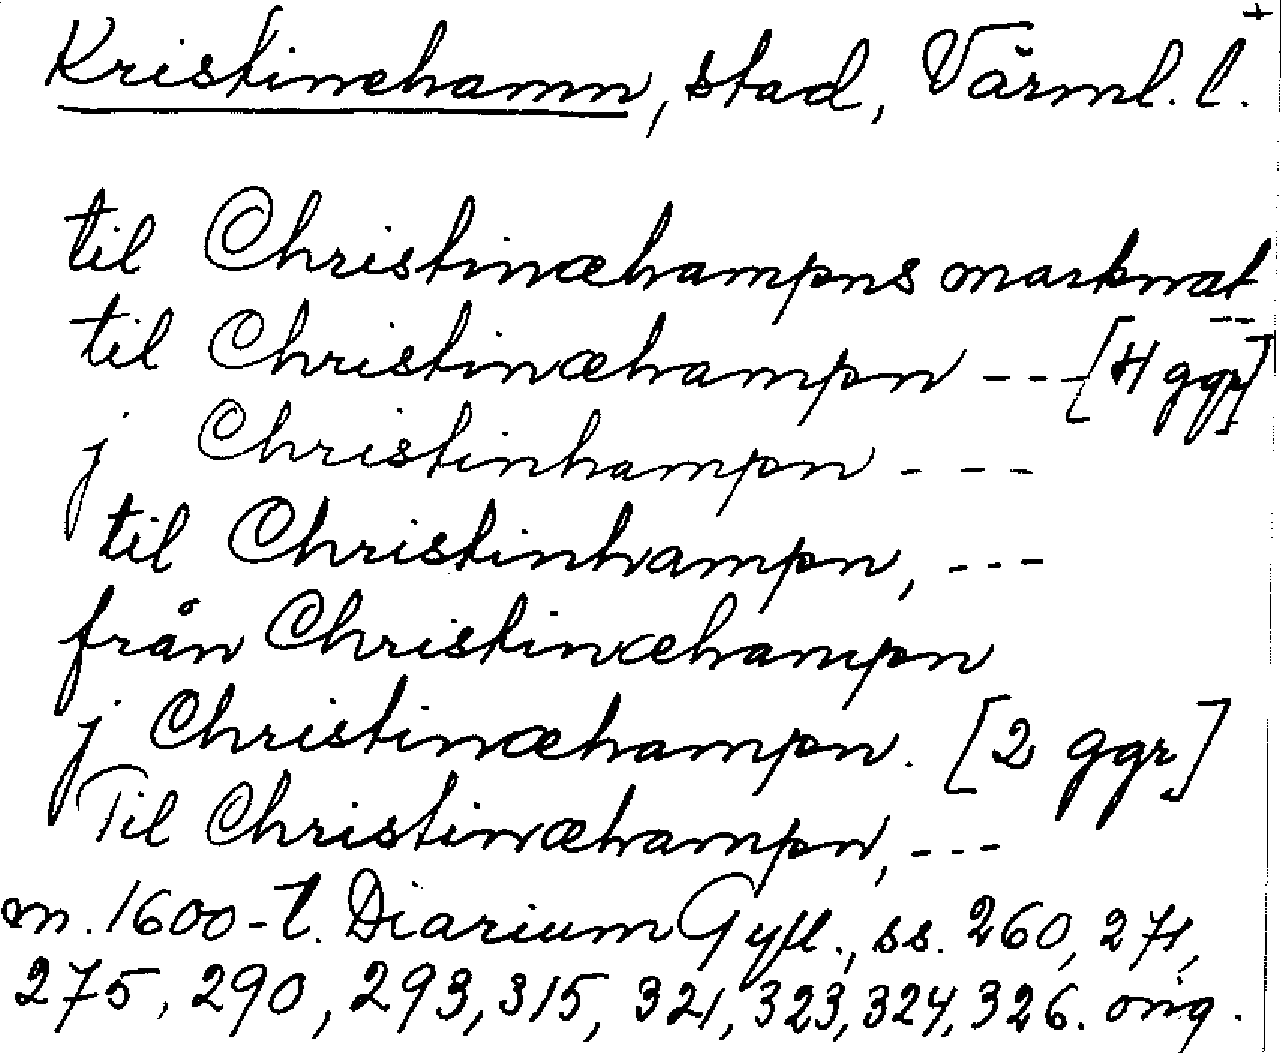 +
Kristinehamn, stad, Värml. l.
til Christinæhampns marknat
til Christinæhampn --- [4 ggr]
j Christinhampn ---
til Christinhampn, ---
från Christinæhampn
j Christinæhampn. [2 ggr]
Til Christinæhampn, ---
m. 1600-t. Diarium Gyll., ss. 260, 271,
275, 290, 293, 315, 321, 323, 324, 326. orig.